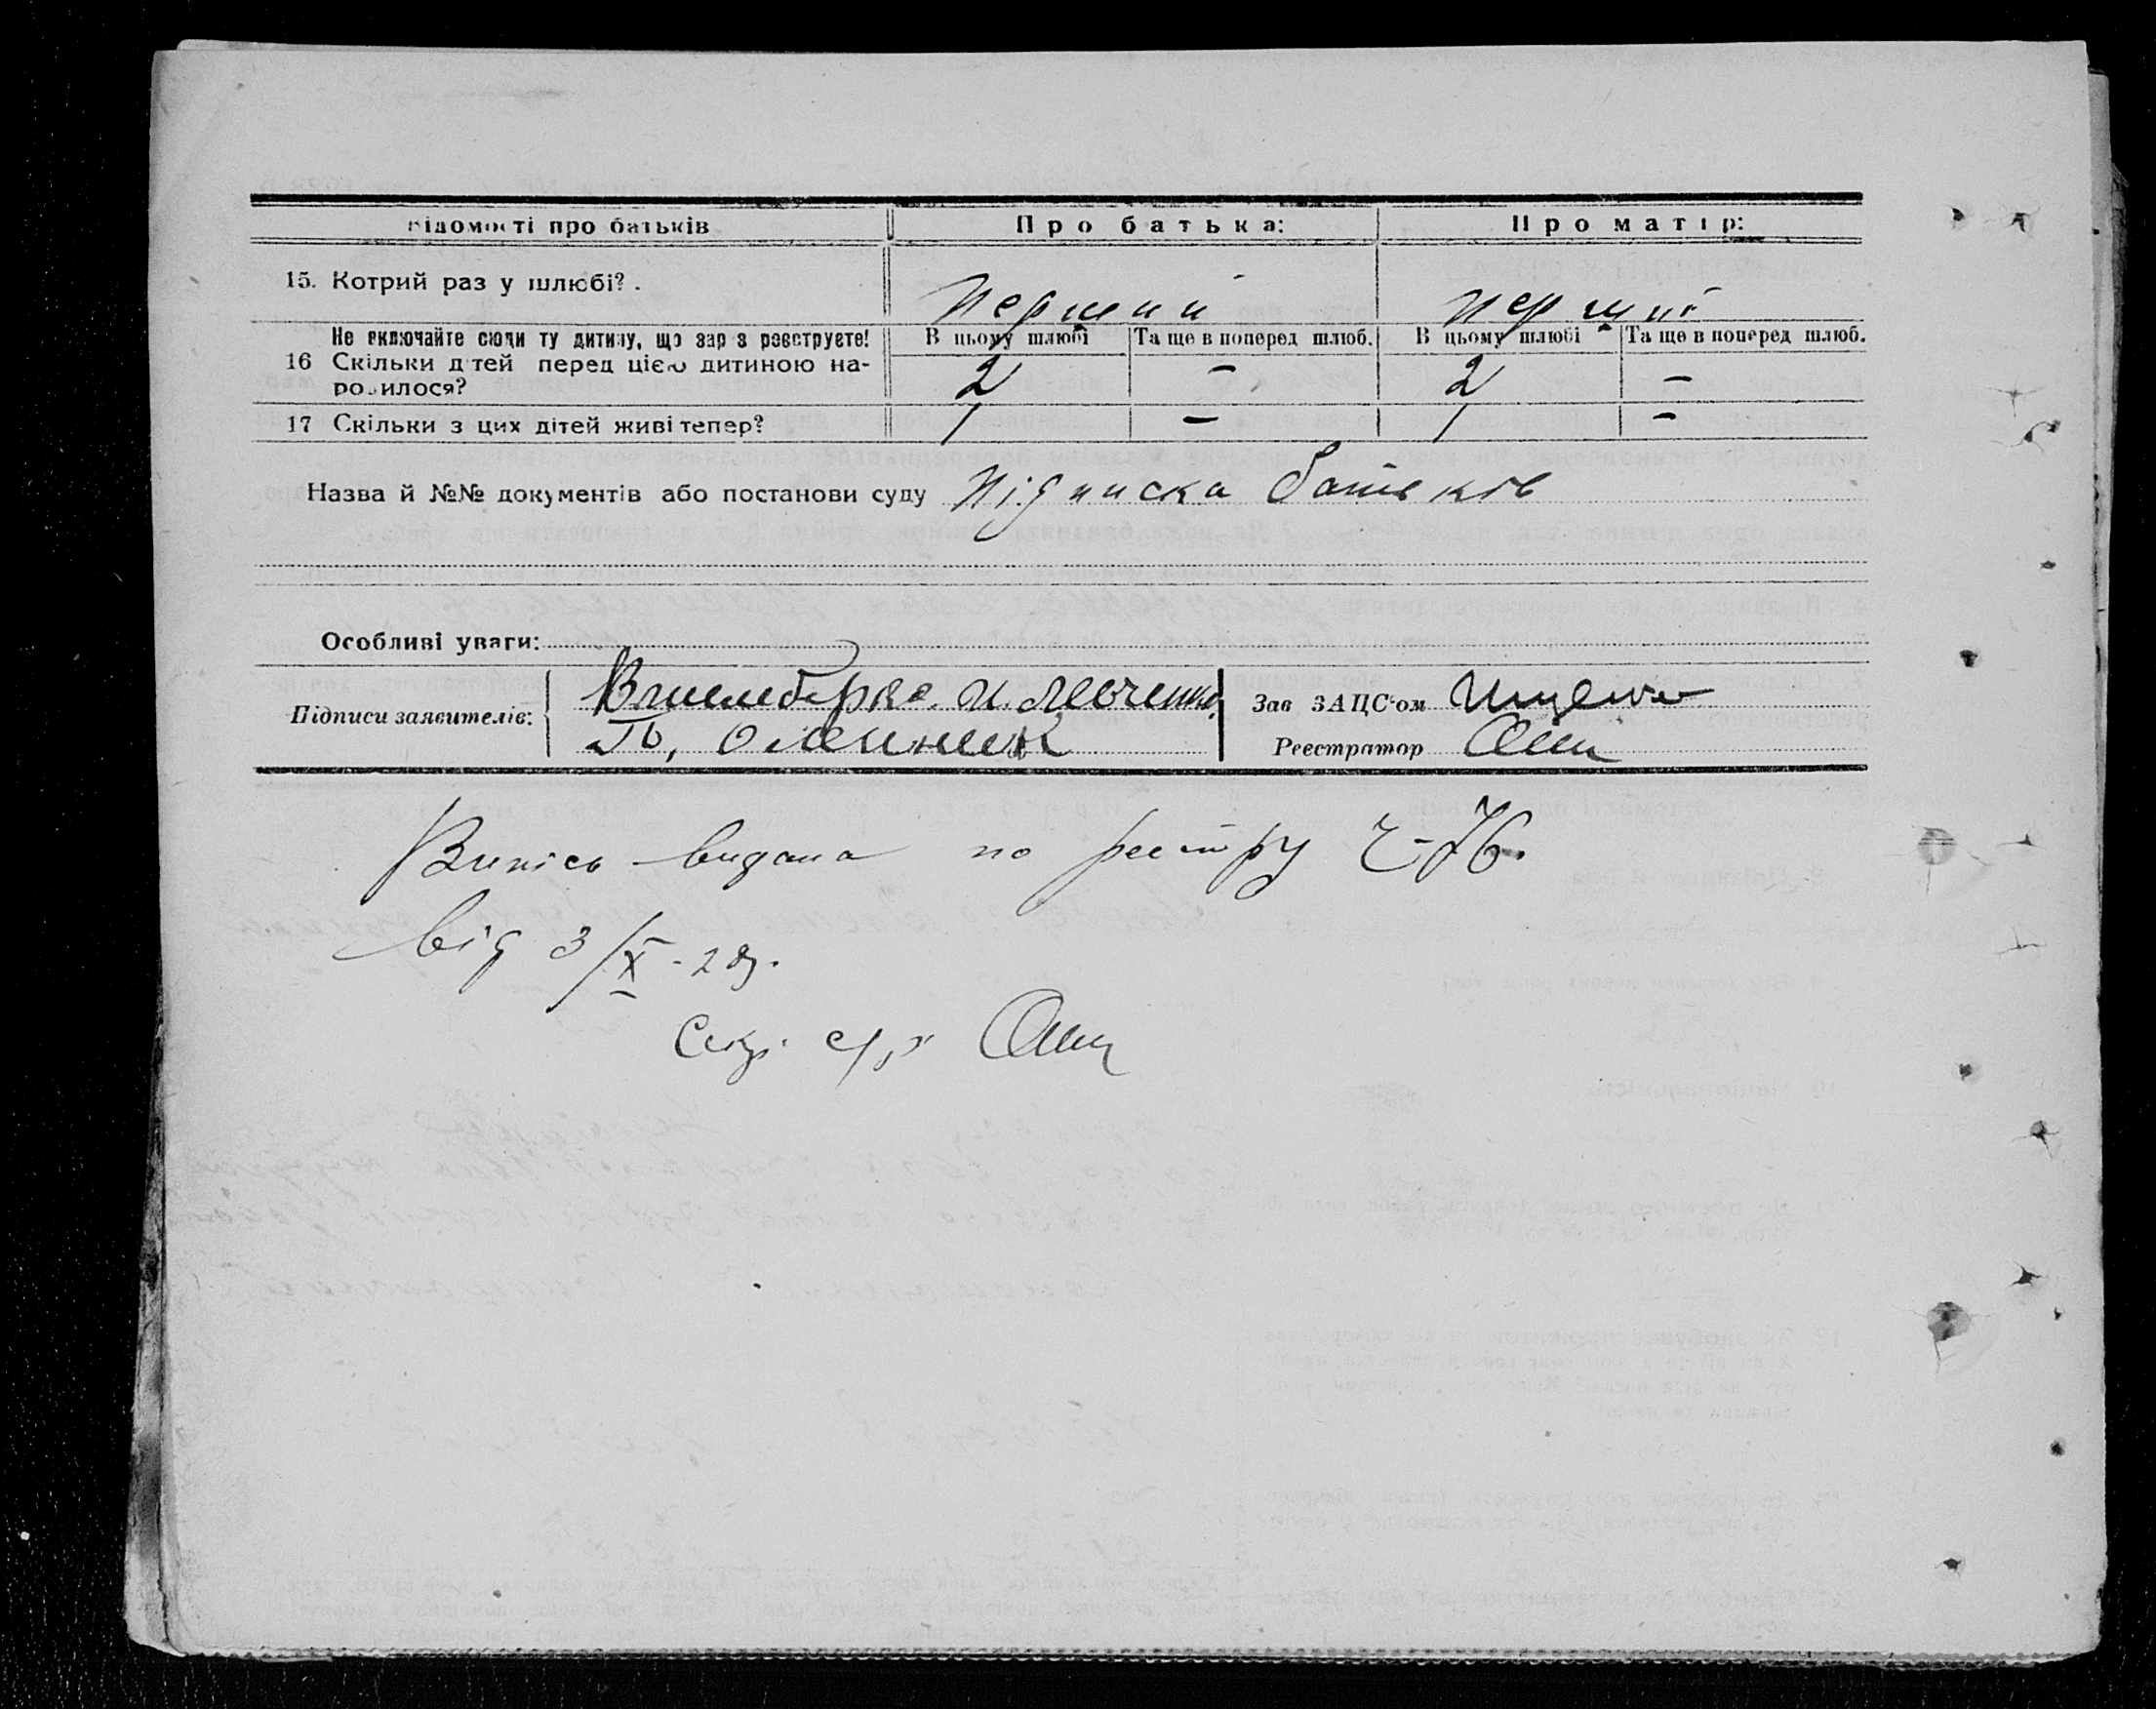 Відомості про батьків Про батька: Про матір:
15. Котрий раз у шлюбі? . Перший перший
Не включайте сюди ту дитину, що зараз реєструєте! В цьому шлюбі Та ще в поперед шлюб. В цьому шлюбі Та ще в поперед шлюб.
16 Скільки дітей перед цією дитиною на-
родилося? 2 - 2 -
17 Скільки з цих дітей живі тепер? 1 - 1 -
Назва й №№ документів або постанови суду Підписка батьків
Особливі уваги:
Підписи заявителів: И. Левченко
Олейник
Зав ЗАЦС-ом Ищенко
Реєстратор
Випись видана по реєстру Ч-76.
від 3/X-28.
Секр. с/р